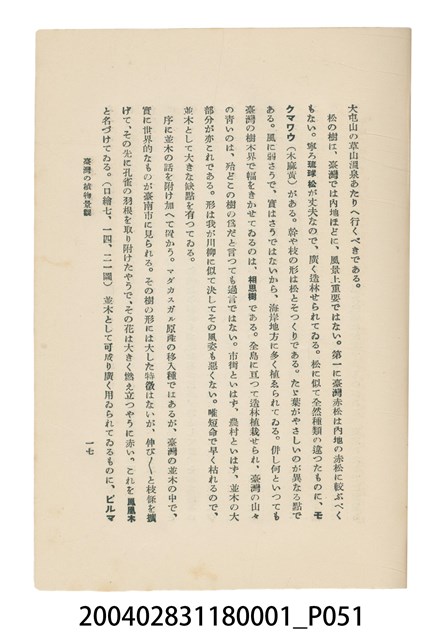 大屯山の草山溫泉あたりへ行くべきである。
松の樹は、臺灣では內地ほどに、風景上重要ではない。第一に臺灣赤松は內地の赤松に較ぶべく
もない。寧ろ琉球松が丈夫なので、廣く造林せられてゐる。松に似て全然種類の違つたものに、モ
クマワウ(木麻黃)がある。幹や枝の形は松とそつくりである。たゞ葉がやさしいのが異なる點で
ある。風に弱さうで、實はさうではないから、海岸地方に多く植ゑられてゐる。併し何といつても
臺灣の樹木界で幅をきかせてゐるのは、相思樹である。全島に亙つて造林植栽せられ、臺灣の山々
の靑いのは、殆どこの樹の爲だと言つても過言ではない。市街といはず、農村といはず、並木の大
部分が亦これである。形は我が川柳に似て決してその風姿も惡くない。唯短命で早く枯れるので、
並木として大きな缺點を有つてゐる。
序に並木の話を附け加へて置かう。マダカスガル原産の移入種ではあるが、臺灣の並木の中で、
實に世界的なものが臺南市に見られる。その樹の形には大した特徵はないが、伸び〳〵と枝條を擴
げて、その先に孔雀の羽根を取り附けたやうで、その花は大きく燃え立つやうに赤い。これを鳳凰木
と名づけてゐる。(口繪七、一四、二一圖)並木として可成り廣く用ゐられてゐるものに、ビルマ
臺灣の植物景觀
一七
200402831180001_P051